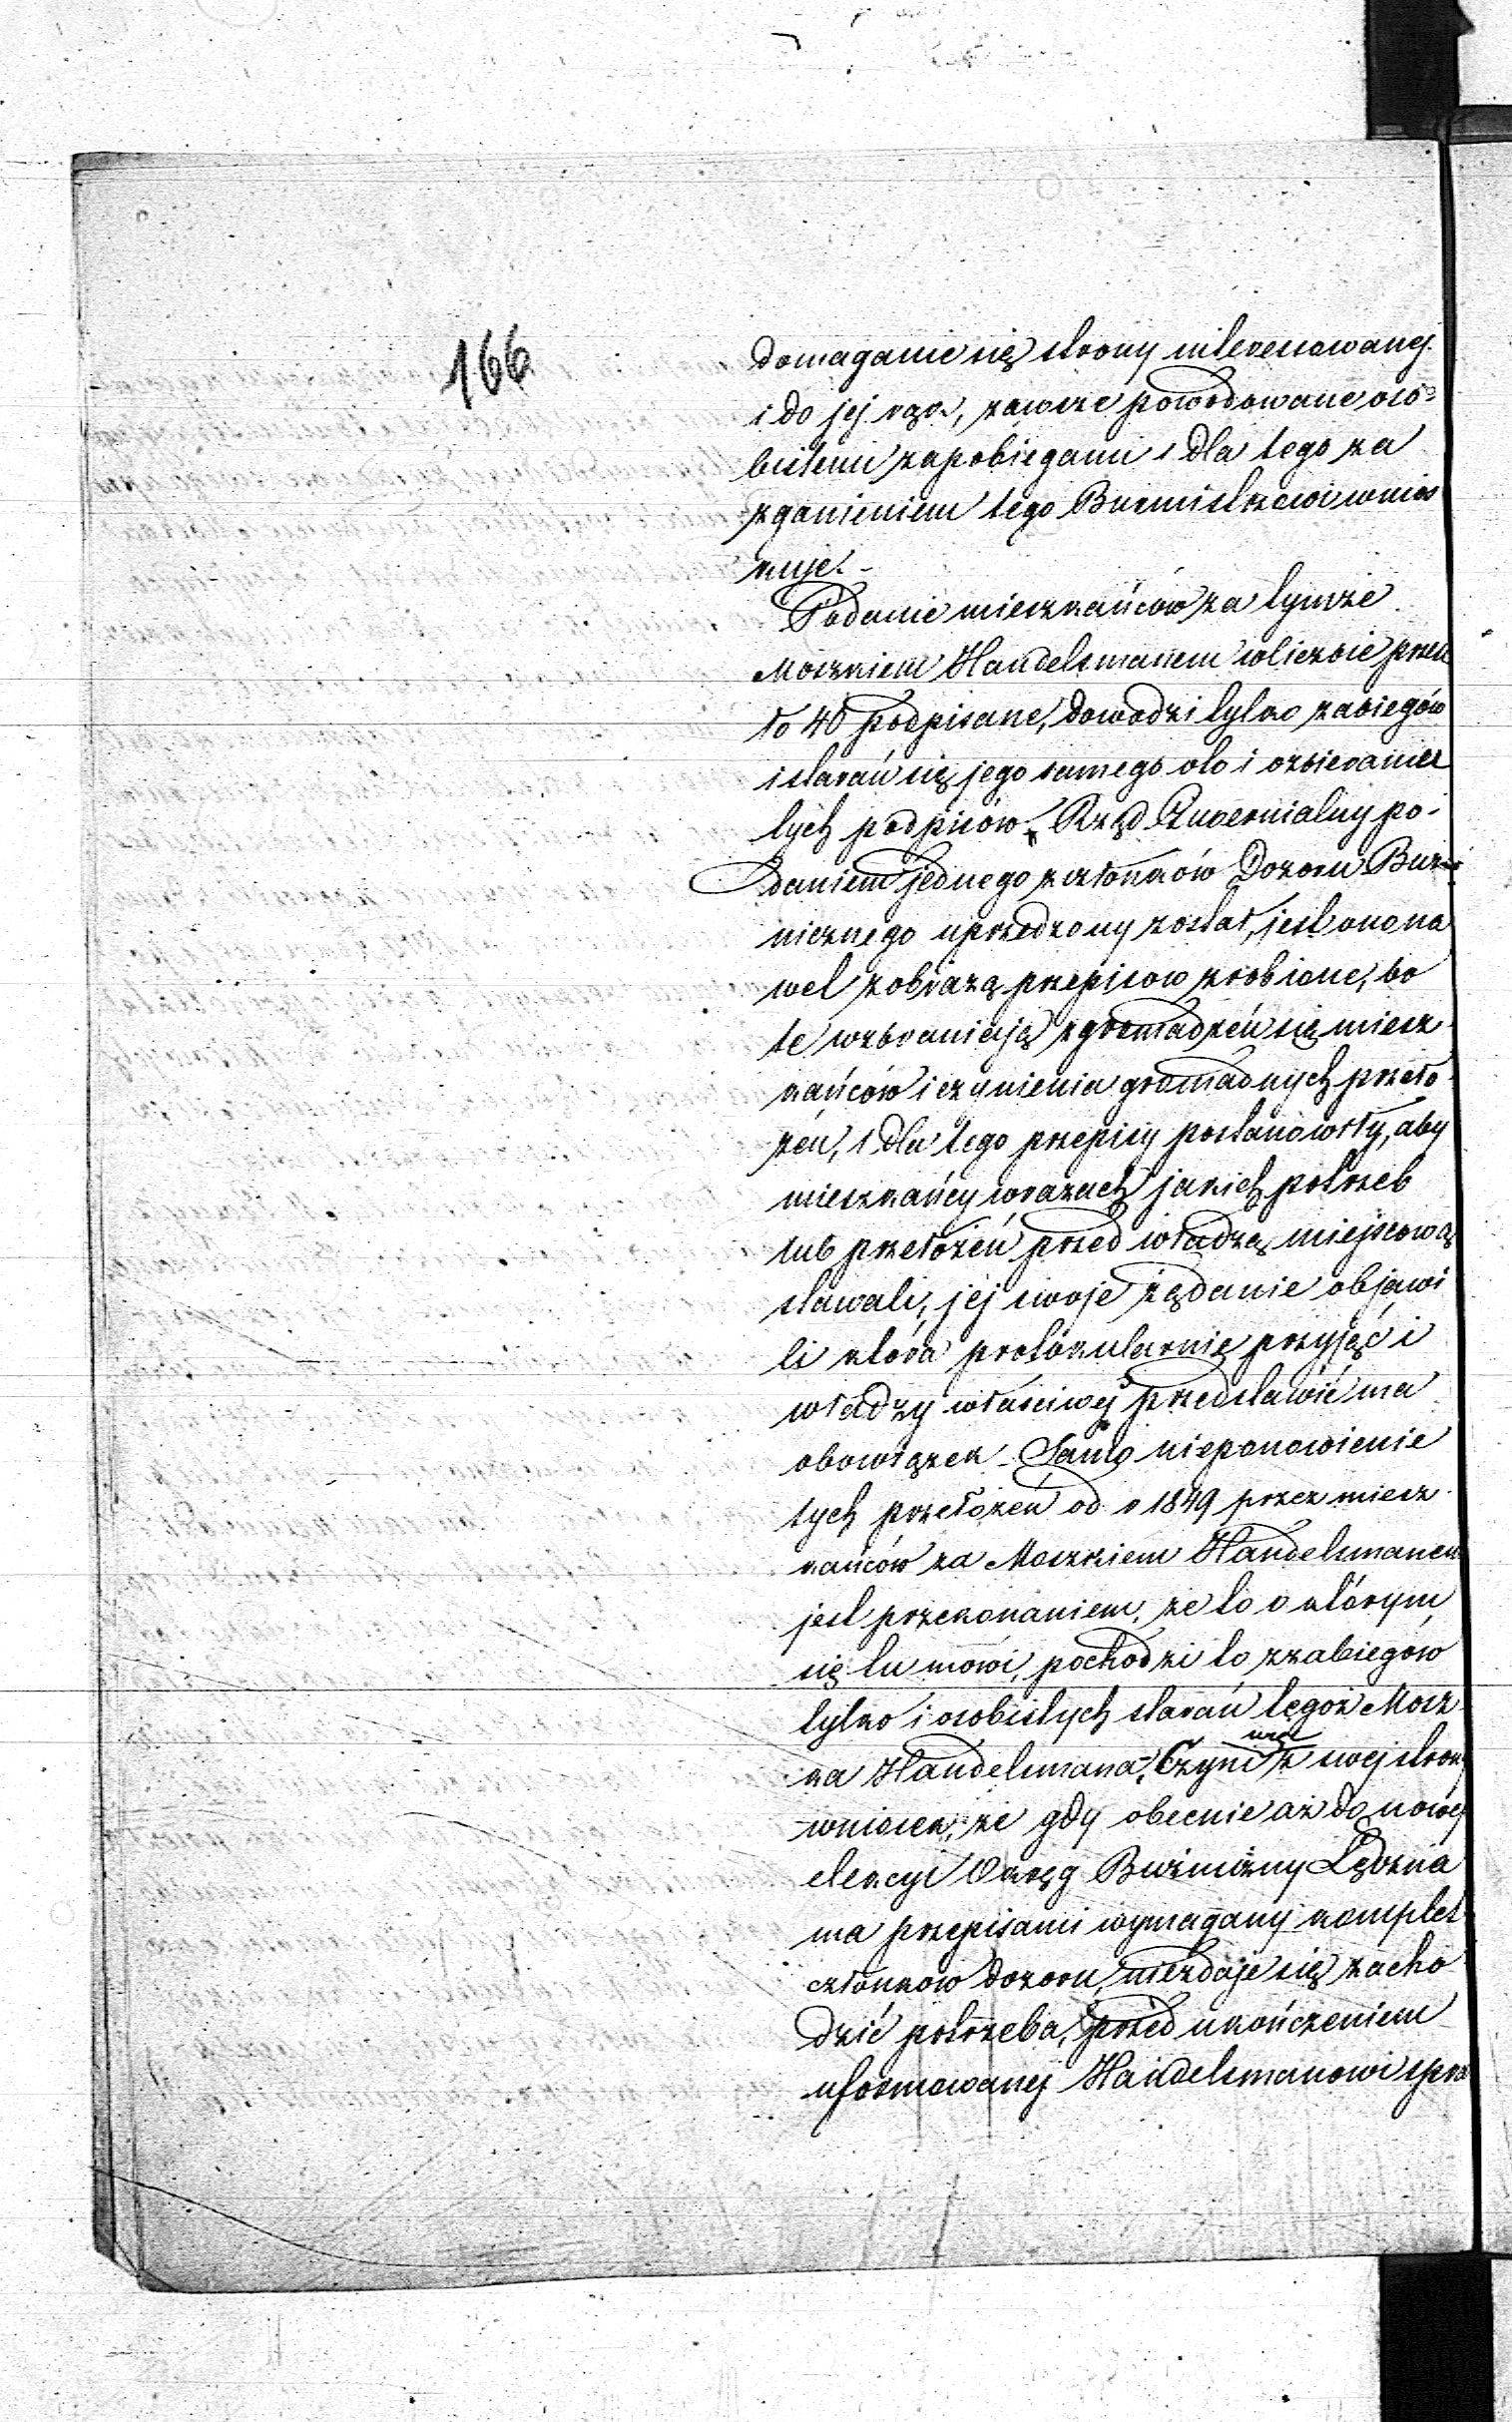 166
domaganie się strony interessowanej
i do jej rąk, zawsze powodowane oso=
bistemi zapobiegami i dla tego za
zganieniem tego Burmistrzowi wnios
kuje.-
Podanie mieszkańców za tymże
Moszkiem Handelsmanem wliczbie przesz
ło 40 podpisane, dowodzi tylko zabiegów
i starań się jego samego oto i ozbieranie
tych podpisów. Rząd Gubernialny po-
daniem jednego z członków Dozoru Buż-
nicznego uprzedzony został, jest ono na
wet zobrazą przepisow zrobione, bo
te wzbraniają zgromadzeń się miesz
kańców i czynienia gromadnych przeło
żeń, i dla tego przepisy postanowiły, aby
mieszkańcy wrazach jakich potrzeb
lub przełożeń przed władzą miejscową
stawali, jej swoje żądanie objawi
li która protókularnie przyjąć i
władzy właściwej przedstawić ma
obowiązek - Samo nieponowienie
tych przełożeń od r 1849 przez miesz
kańców za Moszkiem Handelsmanem
jest przekonaniem, że to o którym
się tu mówi, pochodzi to zzabiegów
tylko i osobistych starań tegoż Mosz
ka Handelsmana, Czyni z swej strony
wniosek, że gdy obecnie aż do nowej
elekcyi Okręg Bużniczny Lędzka
ma przepisami wymagany komplet
członkow dozoru, niezdaje się zacho
dzić potrzeba, przed ukończeniem
uformowanej Handelsmanowi spra